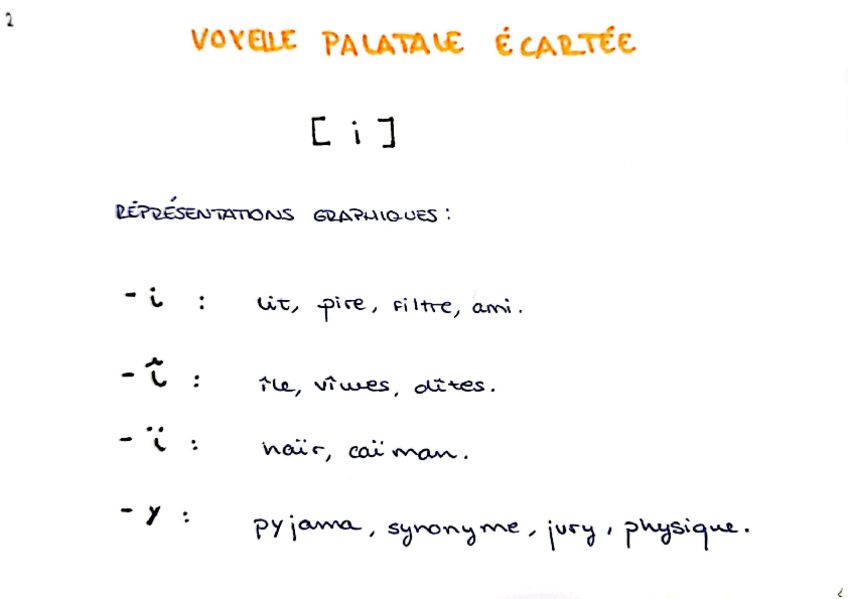 2
VOYELLE PALATALE ÉCARTÉE
[ i ]
RÉPRÉSENTATIONS GRAPHIQUES :
- i : lit, pire, filtre, ami.
- î : île, vîmes, dîtes.
- ï : naïf, caïman.
- y : pyjama, synonyme, jury, physique.